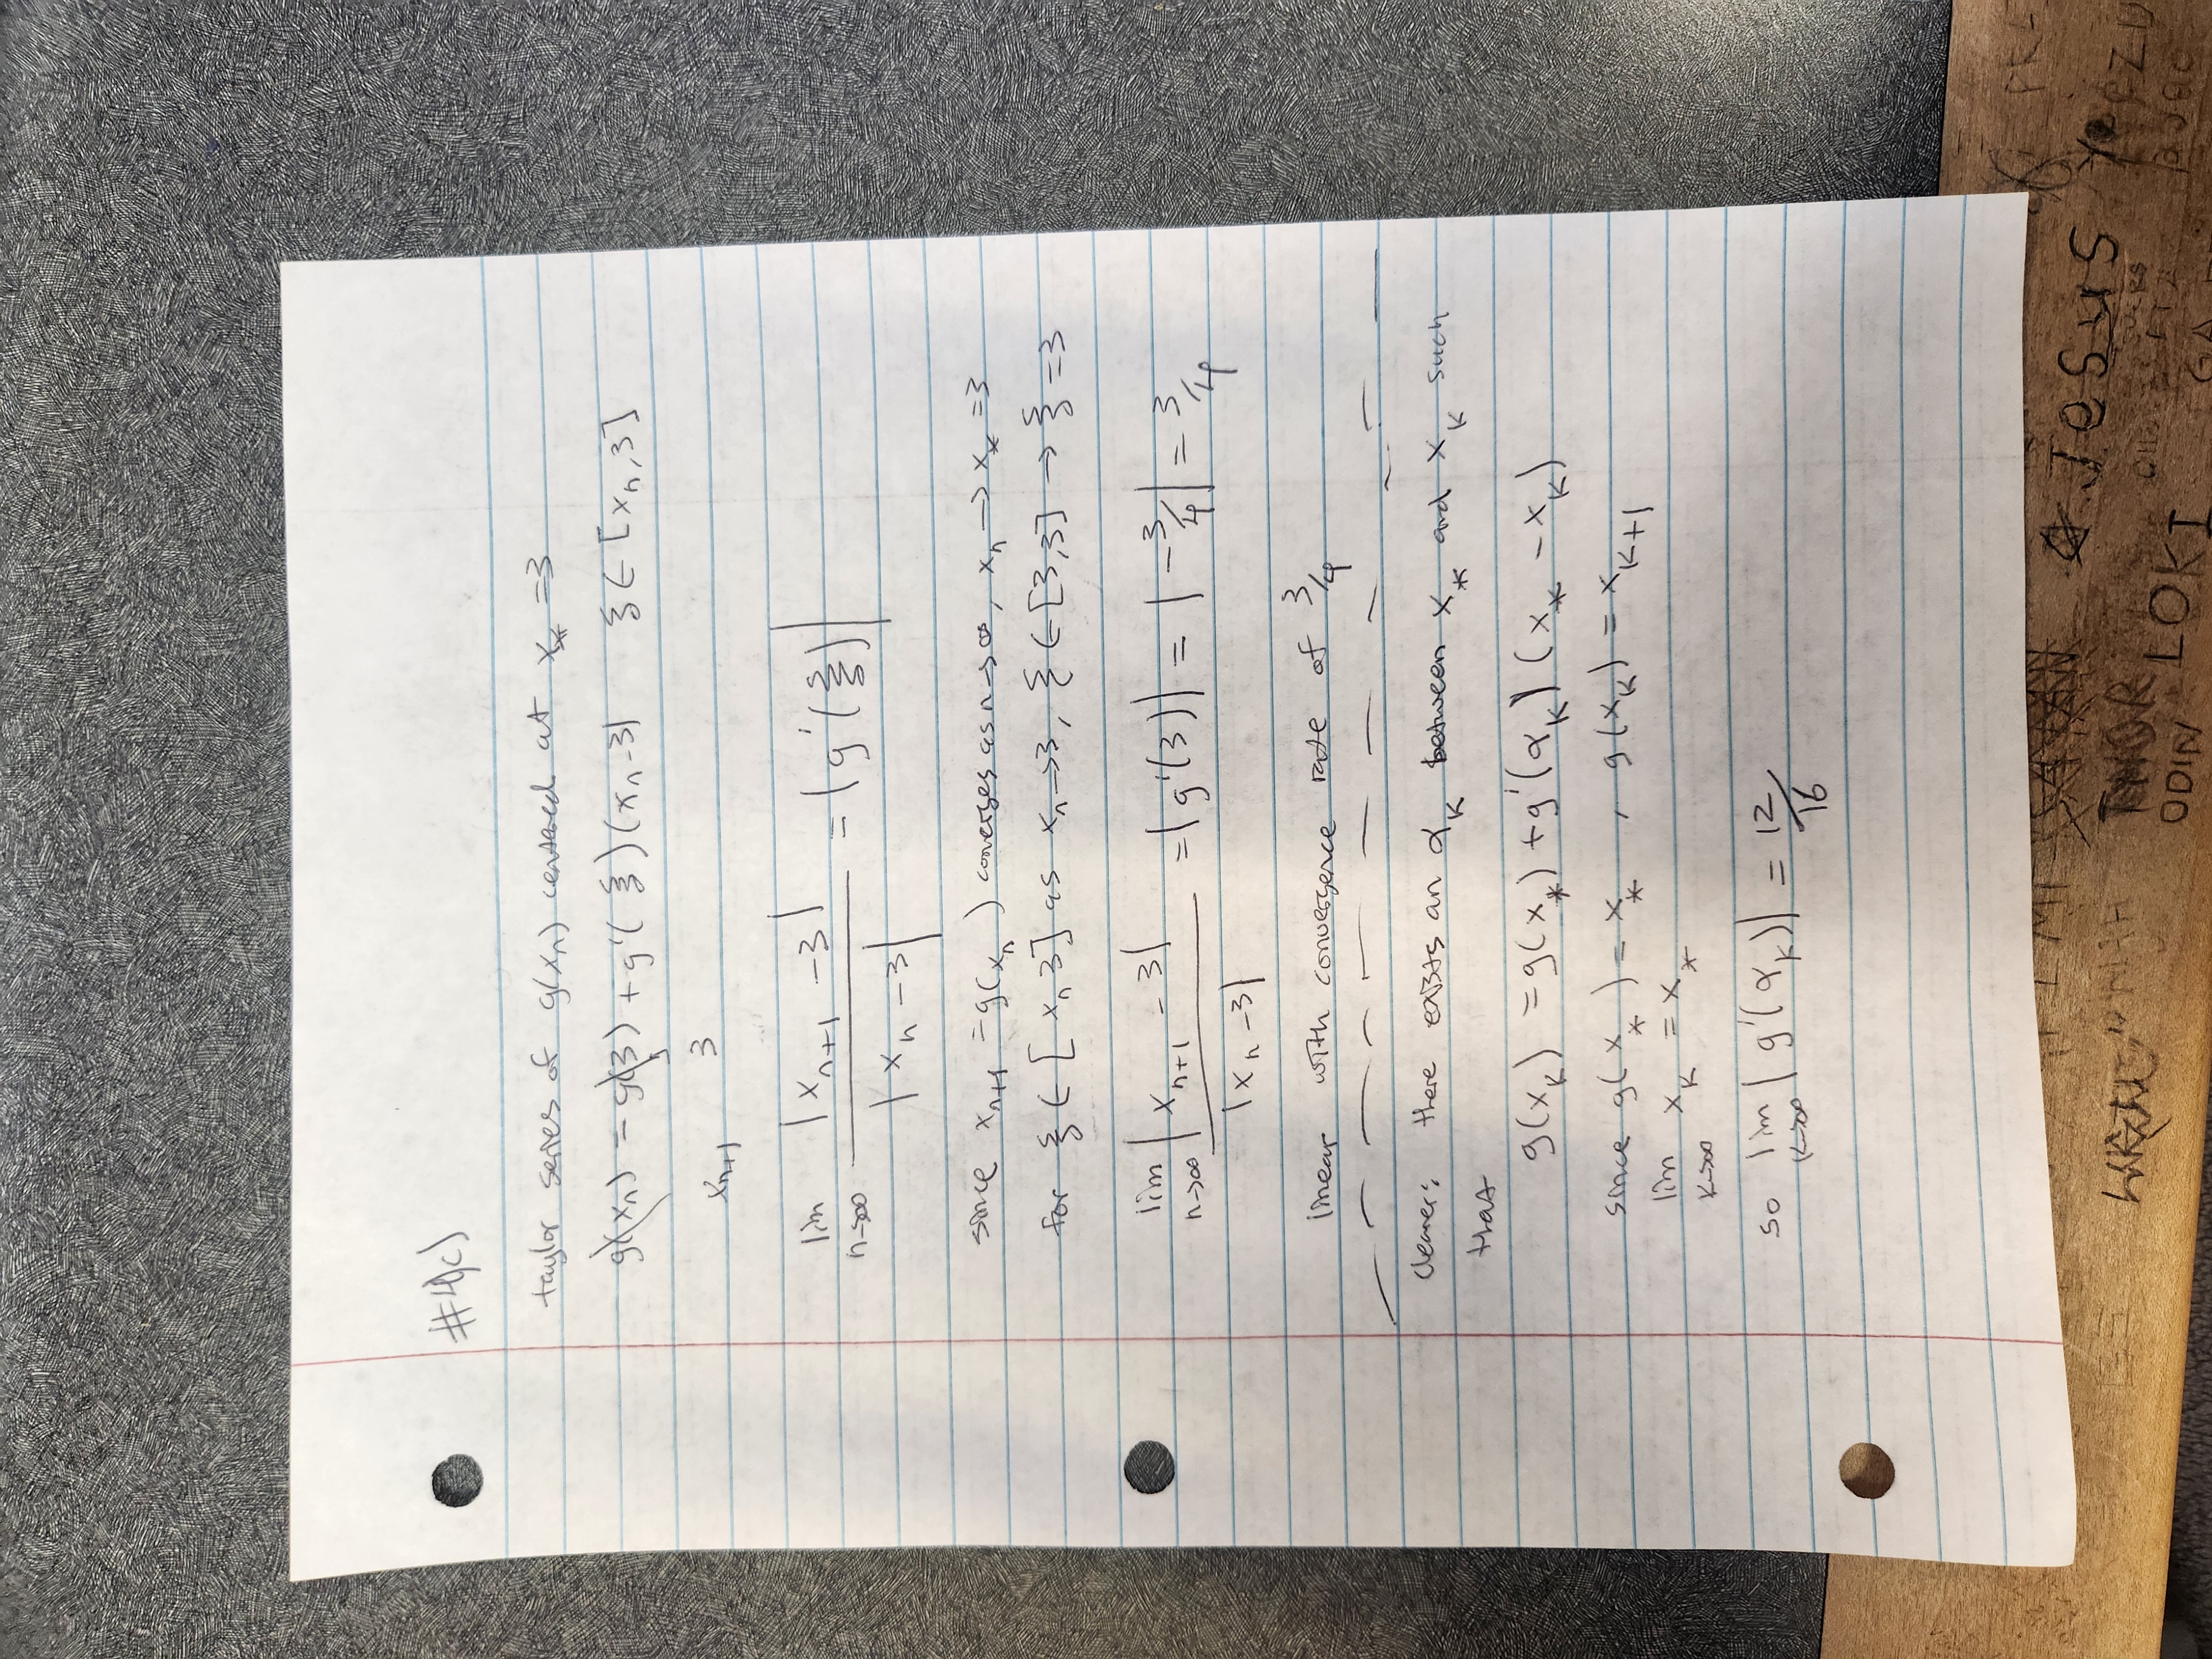 #4(c)
taylor series of g(xₙ) centered at x_* = 3
g(xₙ) = g(3) + g'(ξ)(xₙ-3) ξ ∈ [xₙ,3]
xₙ₊₁ 3
lim n→∞ |xₙ₊₁ - 3| / |xₙ - 3| = |g'(ξ)|
since xₙ₊₁ = g(xₙ) converges as n→∞, xₙ → x_* = 3
for ξ ∈ [xₙ,3] as xₙ→3, ξ ∈ [3,3] → ξ = 3
lim n→∞ |xₙ₊₁ - 3| / |xₙ - 3| = |g'(3)| = |-3/4| = 3/4
linear with convergence rate of 3/4
cleaner: there exists an α_k between x_* and x_k such
that
g(x_k) = g(x_*) + g'(α_k)(x_* - x_k)
since g(x_*) = x_* , g(x_k) = x_{k+1}
lim k→∞ x_k = x_*
so lim k→∞ |g'(α_k)| = 12/16
Jesus
THOR
ODIN
LOKI